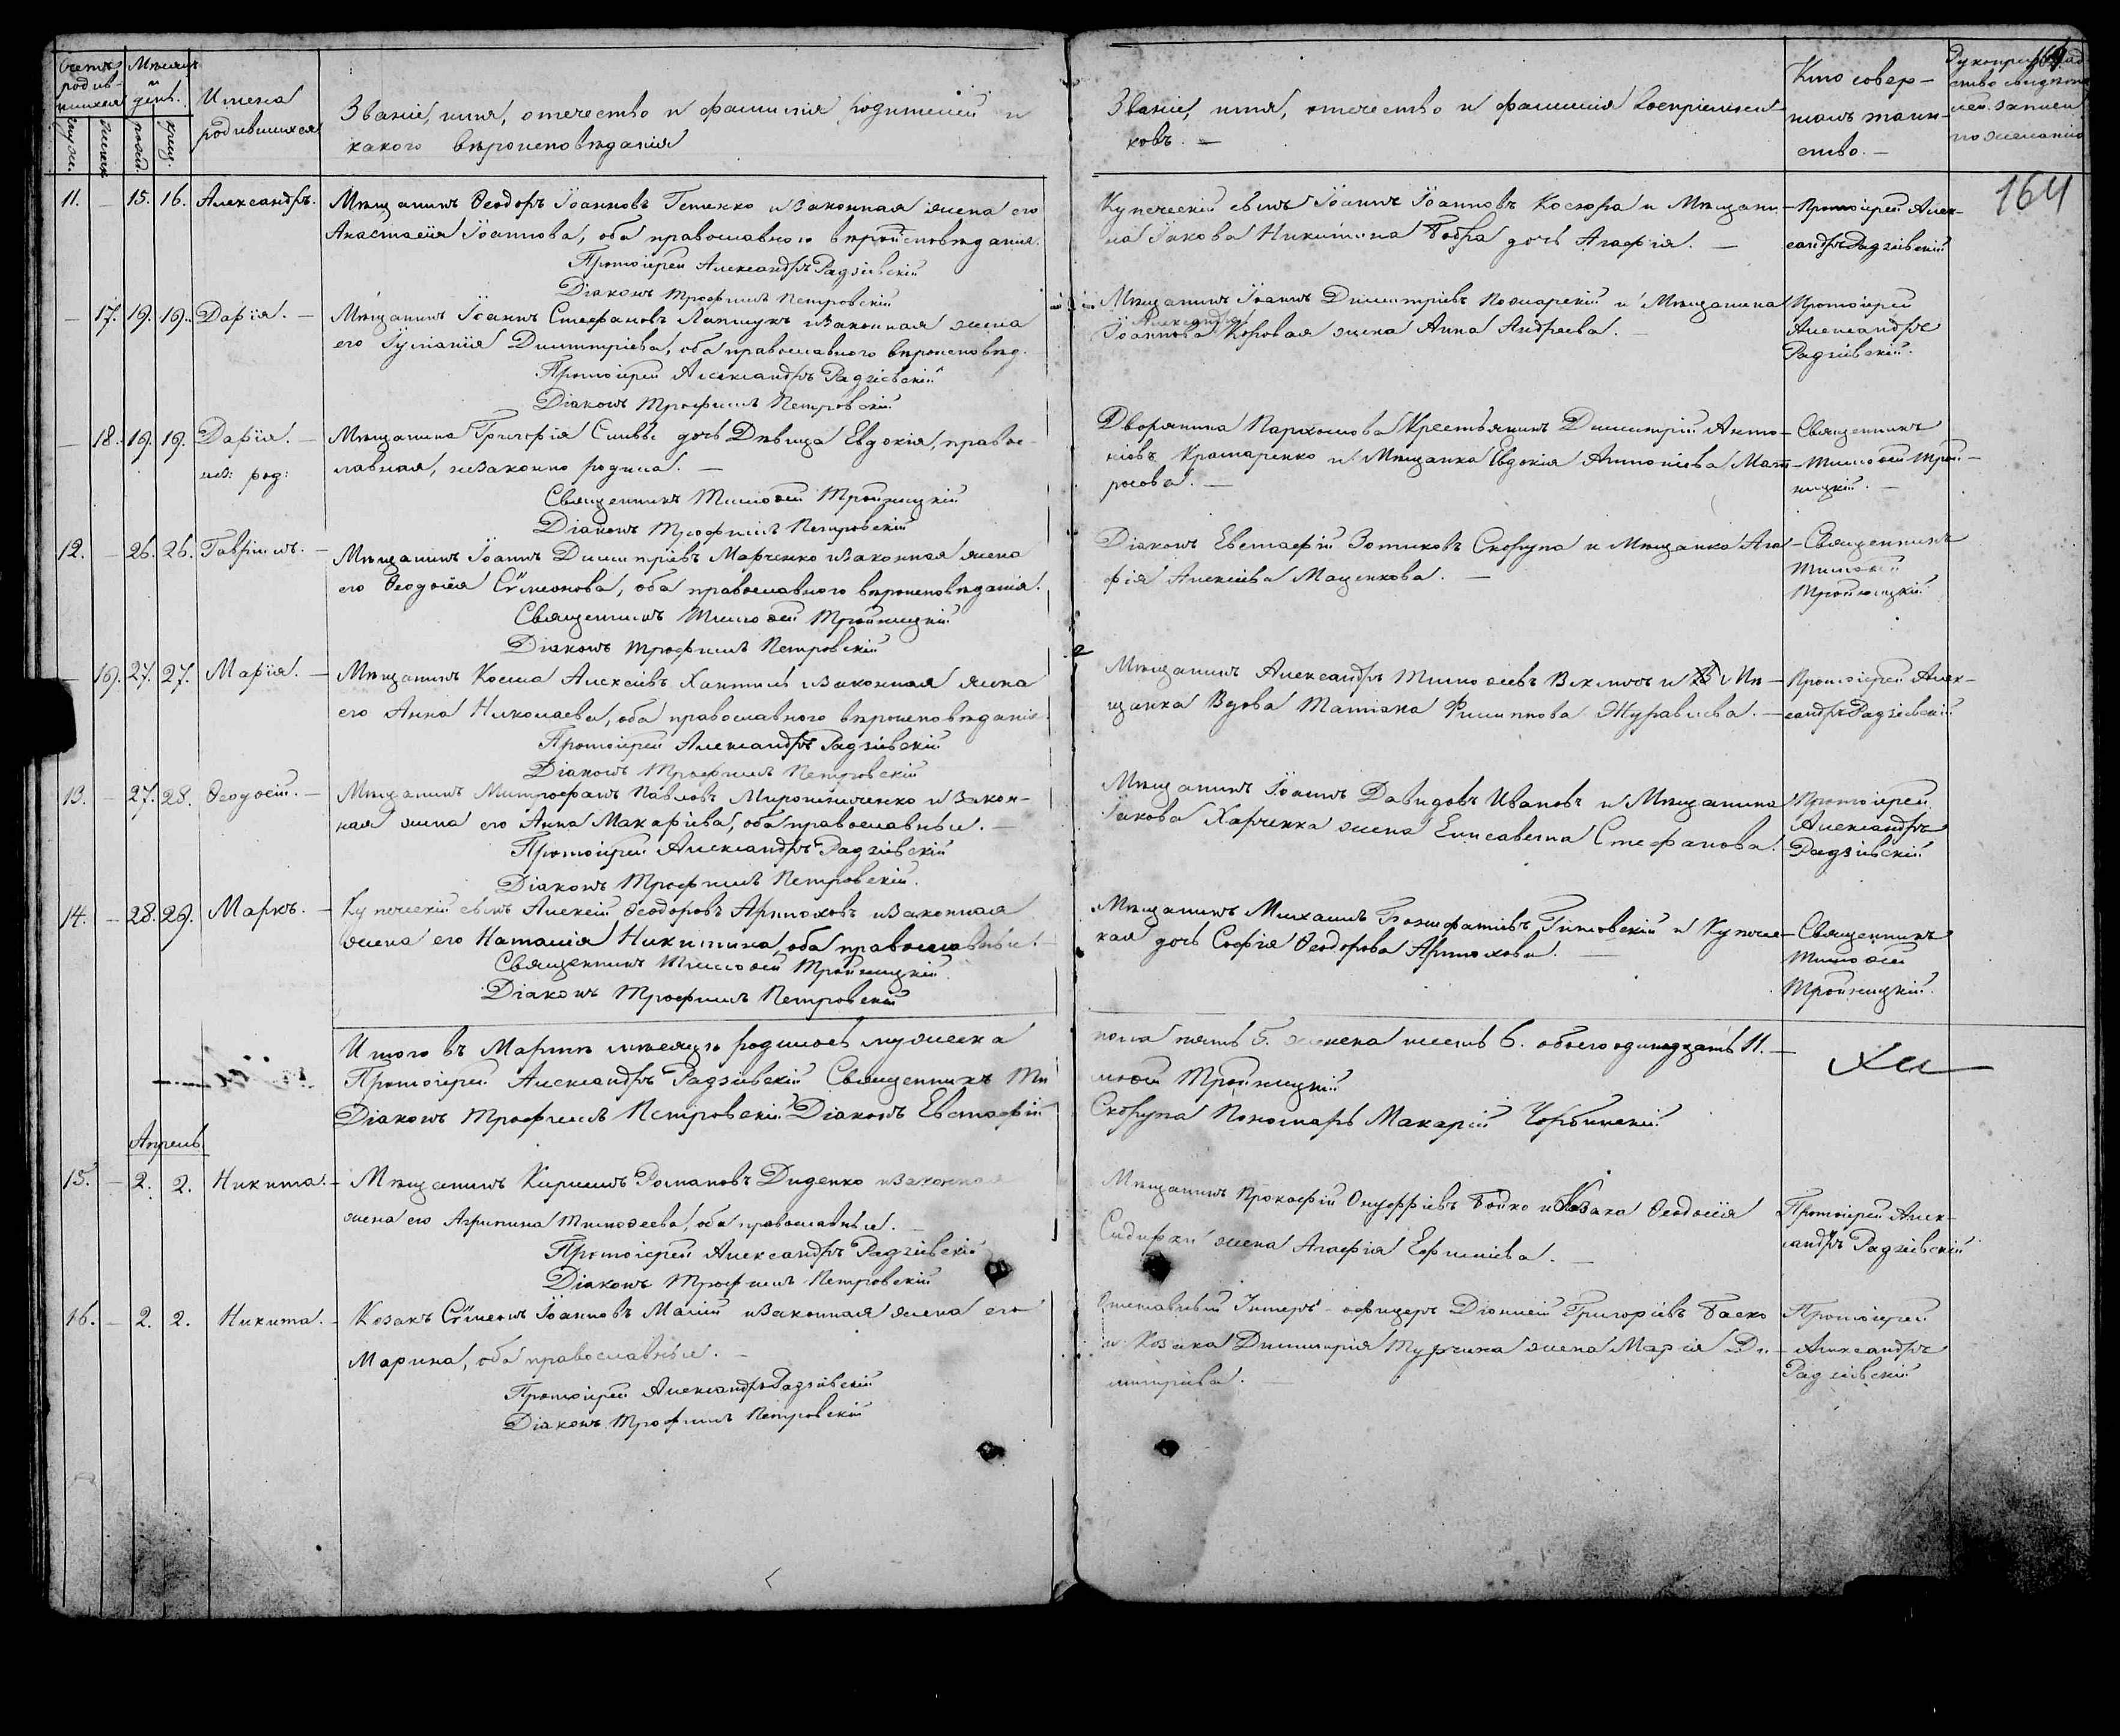 Счетъ родив-
шихся
муж. женск.
Мѣсяцъ
и
день.
рожд. крещ.
Имена
родившихся
Званіе, имя, отечество и фамилія родителей и
какого вѣроисповѣданія
Званіе, имя, отечество и фамилія воспріемни-
ковъ. —
Кто совер-
шалъ таин-
ство. —
ство
записи
по желанію
164
11. — 15. 16. Александръ.
Мѣщанинъ Ѳеодоръ Іоанновъ и законная жена его
Анастасія Іоаннова, оба православного вѣроисповѣданія.
Протоіерей Александръ Радзіевскій
Діаконъ Трофимъ Петровскій
Купеческій сынъ Іоаннъ Іоанновъ Костюра и Мѣщани-
на Іакова Никитина Бобра дочь Агафія. —
Протоіерей Алек-
сандръ Радзіевскій
— 17. 19. 19. Дарія. —
Мѣщанинъ Іоаннъ Стефановъ Лапшукъ и законная жена
его Іуліанія Димитріева, оба православного вѣроисповѣд.
Протоіерей Александръ Радзіевскій
Діаконъ Трофимъ Петровскій
Мѣщанинъ Іоаннъ Димитріевъ Пожарскій и Мѣщанина
Александра
Іоаннова Коровая жена Анна Андреева. —
Протоіерей
Александръ
Радзіевскій.
— 18. 19. 19. Дарія. —
нез: род:
Мѣщанина Григорія дочь Дѣвица Евдокія, правос-
лавная, незаконно родила. —
Священникъ Тимоѳей Тройницкій
Діаконъ Трофимъ Петровскій
Дворянина Пархомова Крестьянинъ Димитрій Анто-
ніовъ Крамаренко и Мѣщанка Евдокія Антоніева Мат-
росова. —
Священникъ
Тимоѳей Трой-
ницкій. —
12. — 26. 26. Гавріилъ. —
Мѣщанинъ Іоаннъ Димитріевъ Марченко и законная жена
его Ѳеодосія Сѵмеонова, оба православного вѣроисповѣданія.
Священникъ Тимоѳей Тройницкій
Діаконъ Трофимъ Петровскій
Діаконъ Евстафій Зотиковъ Скорупа и Мѣщанка Ага-
фія Алексіева Маценкова. —
Священникъ
Тимоѳей
Тройницкій
— 19. 27. 27. Марія. —
Мѣщанинъ Косма Алексіевъ и законная жена
его Анна Николаева, оба православного вѣроисповѣданія.
Протоіерей Александръ Радзіевскій
Діаконъ Трофимъ Петровскій
Мѣщанинъ Александръ Тимоѳеевъ и Мѣ-
щанка Вдова Татіана Филиппова Журавлева. —
Протоіерей Алек-
сандръ Радзіевскій
13. — 27. 28. Ѳеодосій. —
Мѣщанинъ Митрофанъ Павловъ Мирошниченко и закон-
ная жена его Анна Макаріева, оба православные. —
Протоіерей Александръ Радзіевскій
Діаконъ Трофимъ Петровскій.
Мѣщанинъ Іоаннъ Давидовъ Ивановъ и Мѣщанина
Іакова Харченка жена Елисавета Стефанова.
Протоіерей
Александръ
Радзіевскій
14. — 28. 29. Маркъ. —
Купеческій сынъ Алексій Ѳеодоровъ Артюховъ и законная
жена его Наталія Никитина, оба православные. —
Священникъ Тимоѳей Тройницкій
Діаконъ Трофимъ Петровскій
Мѣщанинъ Михаилъ Бонифатіевъ и Купече-
кая дочь Софія Ѳеодорова Артюхова. —
Священникъ
Тимоѳей
Тройницкій.
Итого въ Мартѣ мѣсяцѣ родилось мужеска
пола пять 5. женска шесть 6. обоего одинадцать 11. —
Протоіерей Александръ Радзіевскій Священникъ Ти-
моѳей Тройницкій
Діаконъ Трофимъ Петровскій Діаконъ Евстафій
Скорупа Пономарь Макарій
Апрель
15. — 2. 2. Никита. —
Мѣщанинъ Кириллъ Романовъ Диденко и законная
жена его Агрипина Тимоѳеева, оба православные. —
Протоіерей Александръ Радзіевскій
Діаконъ Трофимъ Петровскій
Мѣщанинъ Прокофій Онуффріевъ Бойко и Козака Ѳеодосія
жена Агафія Ефиміева. —
Протоіерей Алек-
сандръ Радзіевскій
16. — 2. 2. Никита. —
Козакъ Сѵмеонъ Іоанновъ Малій и законная жена его
Марина, оба православные. —
Протоіерей Александръ Радзіевскій
Діаконъ Трофимъ Петровскій
Отставный Унтеръ-офицеръ Діонисій Григоріевъ Баско
и Козака Димитрія Турчина жена Марія Ди-
митріева. —
Протоіерей
Александръ
Радзіевскій